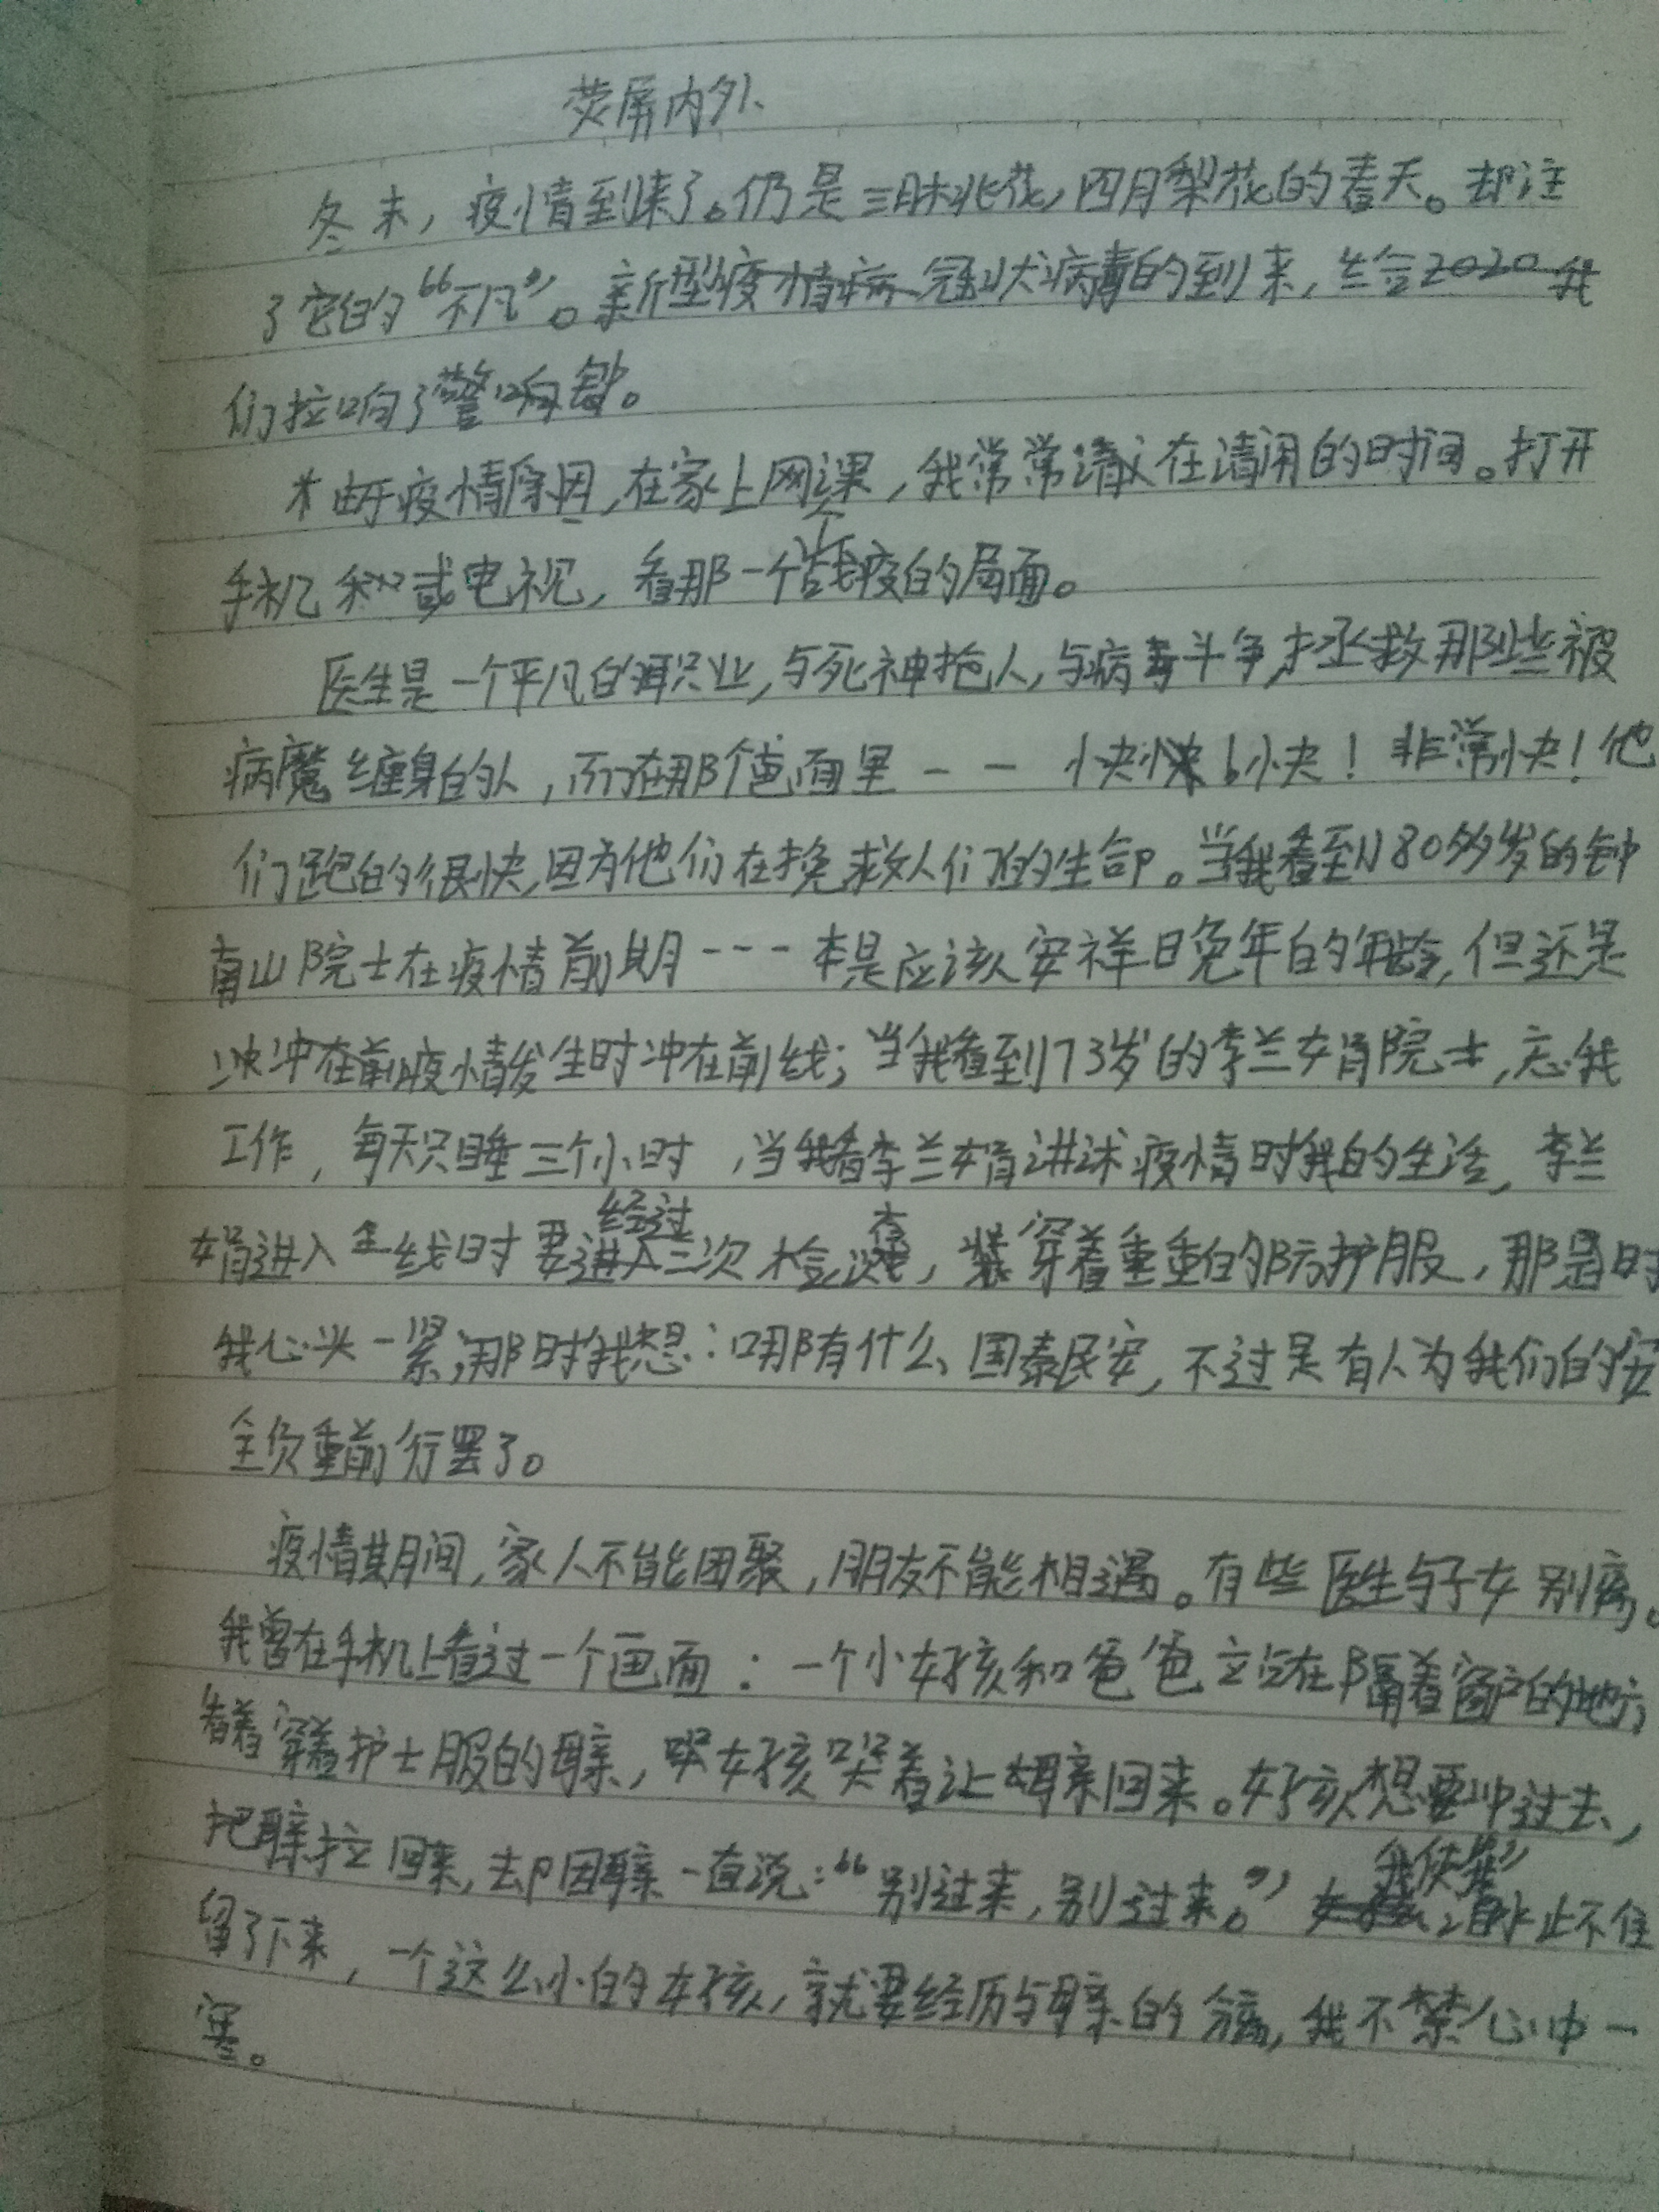 荧屏内外
冬末，疫情到来了。仍是三月桃花，四月梨花的春天。却注
了它的“不凡”。新型冠状病毒的到来，给我
们拉响了警钟。
由于疫情原因，在家上网课，我常常在清闲的时间。打开
手机或电视，看那一个个战疫的局面。
医生是一个平凡的职业，与死神抢人，与病毒斗争，拯救那些被
病魔缠身的人，而在那个画面里－－快！非常快！他
们跑的很快，因为他们在挽救人们的生命。当我看到80多岁的钟
南山院士在疫情前期－－－本是应该安祥日晚年的年龄，但还是
疫情发生时冲在前线；当我看到73岁的李兰娟院士，忘我
工作，每天只睡三个小时，当我看李兰娟讲述疫情时我的生活，李兰
娟进入一线时要经过三次检查，穿着重重的防护服，那时
我心头一紧，那时我想：哪有什么国泰民安，不过是有人为我们的安
全负重前行罢了。
疫情其月间，家人不能团聚，朋友不能相遇。有些医生与子女别离。
我曾在手机上看过一个画面：一个小女孩和爸爸立在隔着窗户的地方，
看着穿着护士服的母亲，女孩哭着让母亲回来。女孩想要冲过去，
把母亲拉回来，却因母亲一直说：“别过来，别过来。”我使泪水止不住
留了下来，一个这么小的女孩，就要经历与母亲的分离，我不禁心中一
塞。